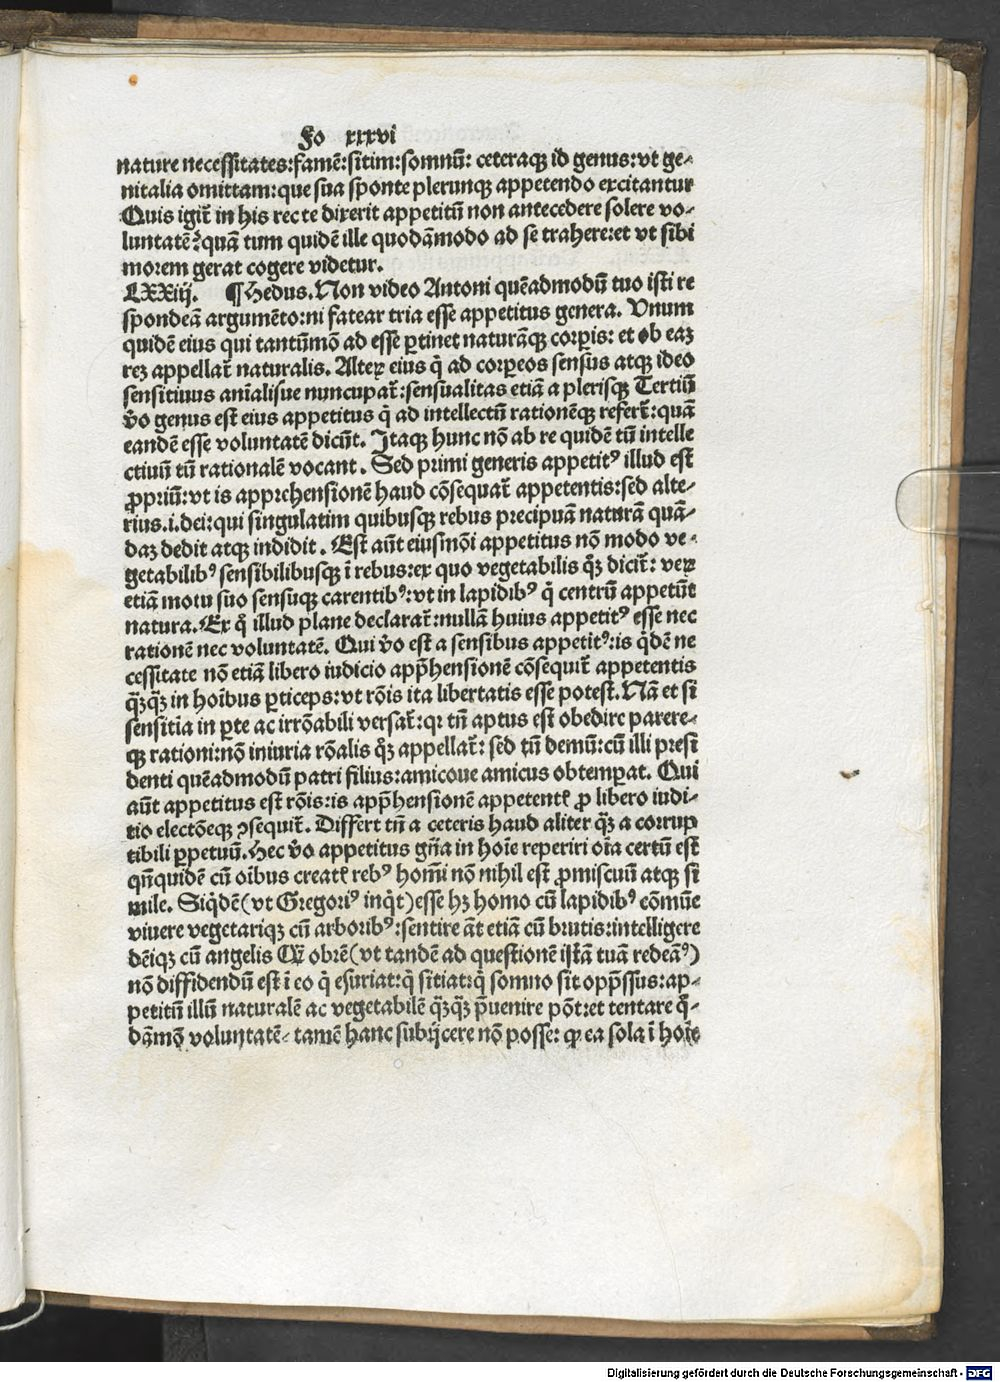 Fo xxxvi
nature necessitates:famē:sitim:somnū: ceteraqꝫ id genus:vt ge⸗
nitalia omittam:que sua sponte plerunqꝫ appetendo excitantur
Quis igit̄ in his rec te dixerit appetitū non antecedere solere vo⸗
luntatē?quā tum quidē ille quodāmodo ad se trahere:et vt sibi
morem gerat cogere videtur.
LXXiij. ¶Hedus.Non video Antoni quēadmodū tuo isti re
spondeā argumēto:ni fatear tria esse appetitus genera. Unum
quidē eius qui tantūmō ad esse ꝑtinet naturāqꝫ corꝑis: et ob eaꝫ
reꝫ appellat̄ naturalis. Alteꝝ eius q̇ ad corꝑeos sensus atqꝫ ideo
sensitiuus anīalisue nuncupat̄:sensualitas etiā a plerisqꝫ Tertiū
v̄o genus est eius appetitus q̇ ad intellectū rationēqꝫ refert̄:quā
eandē esse voluntatē dicūt. Itaqꝫ hunc nō ab re quidē tū intelle
ctiuū tū rationalē vocant. Sed primi generis appetitꝰ illud est
ꝓpriū:vt is apprehensionē haud cōsequat̄ appetentis:sed alte⸗
rius.i.dei:qui singulatim quibusqꝫ rebus precipuā naturā quā⸗
daꝫ dedit atqꝫ indidit. Est aūt eiusmōi appetitus nō modo ve⸗
getabilibꝰ sensibilibusqꝫ ī rebus:ex quo vegetabilis q̄ꝫ dicit̄: veꝝ
etiā motu suo sensuqꝫ carentibꝰ:vt in lapidibꝰ q̇ centrū appetūt
natura.Ex q̊ illud plane declarat̄:nullā huius appetitꝰ esse nec
rationē nec voluntatē. Qui v̄o est a sensibus appetitꝰ:is q̇dē ne
cessitate nō etiā libero iudicio app̄hensionē cōsequit̄ appetentis
q̄ꝫq̄ꝫ in hoībus ꝑticeps:vt rōis ita libertatis esse potest.Nā et si
sensitīa in ꝑte ac irrōabili versat̄:qꝛ tn̄ aptus est obedire parere⸗
qꝫ rationi:nō iniuria rōalis q̊ꝫ appellat̄: sed tn̄ demū:cū illi presi
denti quēadmodū patri filius:amicoue amicus obtemꝑat. Qui
aūt appetitus est rōis:is app̄hensionē appetentꝭ ꝓ libero iudi⸗
tio electōeqꝫ ꝯsequit̄. Differt tn̄ a ceteris haud aliter q̄ꝫ a corrup
tibili ꝑpetuū.Hec v̄o appetitus gn̄a in hoīe reperiri oīa certū est
qn̄quidē cū oībus creatꝭ rebꝰ homī nō nihil est ꝓmiscuū atqꝫ si
mile. Siq̇dē(vt Gregoriꝰ inq̇t)esse hꝫ homo cū lapidibꝰ cōmūe
viuere vegetariqꝫ cū arboribꝰ:sentire āt etiā cū brutis:intelligere
dēiqꝫ cū angelis Qꝫ obrē(vt tandē ad questionē istā tuā redeāꝰ)
nō diffidendū est ī eo q̇ esuriat:q̇ sitiat:q̇ somno sit opp̄ssus:ap⸗
petitū illū naturalē ac vegetabilē q̄ꝫq̄ꝫ p̄uenire pōt:et tentare q̊⸗
dāmō voluntatē⸗ tamē hanc subijcere nō posse: ꝙ ea sola ī hoīe
Digitalisierung gefördert durch die Deutsche Forschungsgemeinschaft - DFG